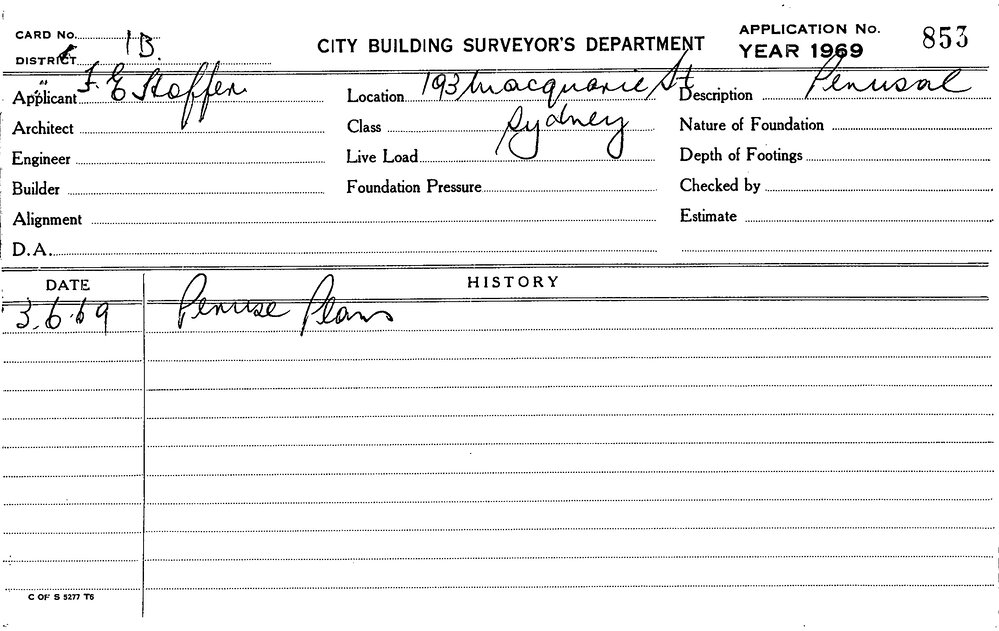 CARD No. 1B.
CITY BUILDING SURVEYOR'S DEPARTMENT
APPLICATION No. 853
YEAR 1969
DISTRICT
Applicant F. E. Stoffen
Location 193 Macquarie St
Sydney
Description Perusal
Architect
Class
Nature of Foundation
Engineer
Live Load
Depth of Footings
Builder
Foundation Pressure
Checked by
Alignment
Estimate
D.A.
DATE
HISTORY
3.6.69 Peruse Plans
C OF S 5277 T6